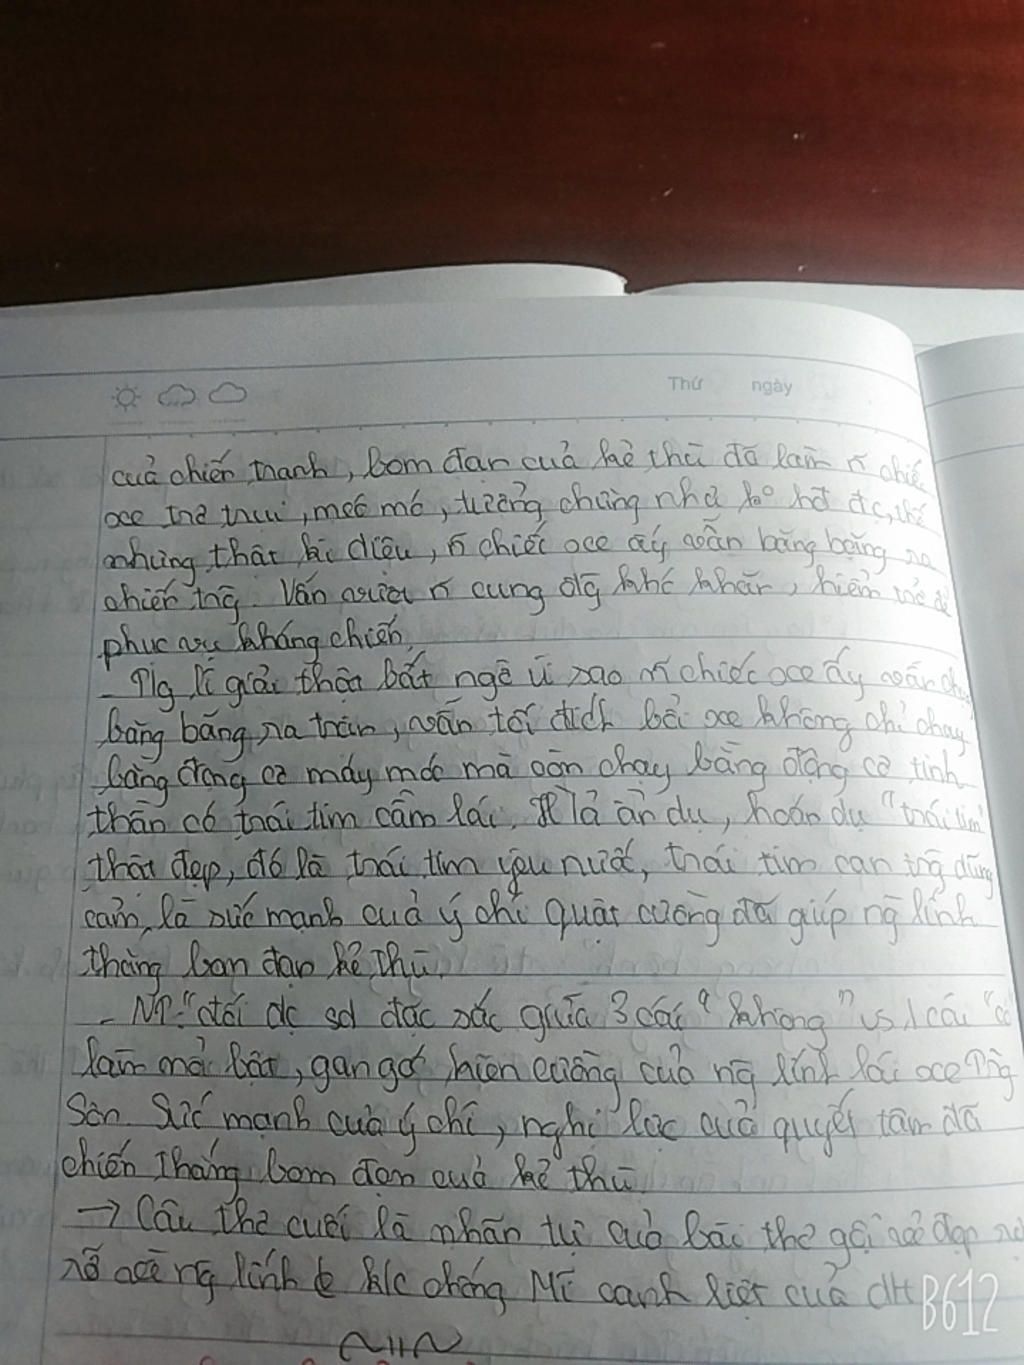 Thứ ngày
của chiến tranh, bom đạn của kẻ thù đã làm n chiếc
xe trơ trụi, méo mó, tưởng chừng như ko hđ đc, thế
nhưng thật kì diệu, n chiếc xe ấy vẫn băng băng ra
chiến trg. Vẫn vượt n cung đg khó khăn, hiểm trở để
phục vụ kháng chiến.
- Tg lí giải thật bất ngờ vì sao n chiếc xe ấy vẫn chạy
băng băng ra trận, vẫn tới đích bởi xe không chỉ chạy
bằng động cơ máy móc mà còn chạy bằng động cơ tinh
thần có trái tim cầm lái. H'ả ẩn dụ, hoán dụ "trái tim"
thật đẹp, đó là trái tim yêu nước, trái tim can trg dũng
cảm, là sức mạnh của ý chí quật cường đã giúp ng lính
thắng bom đạn kẻ thù.
- NT: đối đặc sắc giữa 3 cái "không" vs 1 cái "có"
làm nổi bật, gan góc kiên cường của ng lính lái xe Trg
Sơn. Sức mạnh của ý chí, nghị lực của quyết tâm đã
chiến thắng bom đạn của kẻ thù.
→ Câu thơ cuối là nhãn tự của bài thơ gợi vẻ đẹp
rỡ về ng lính k/c chống Mĩ oanh liệt của dt
B612